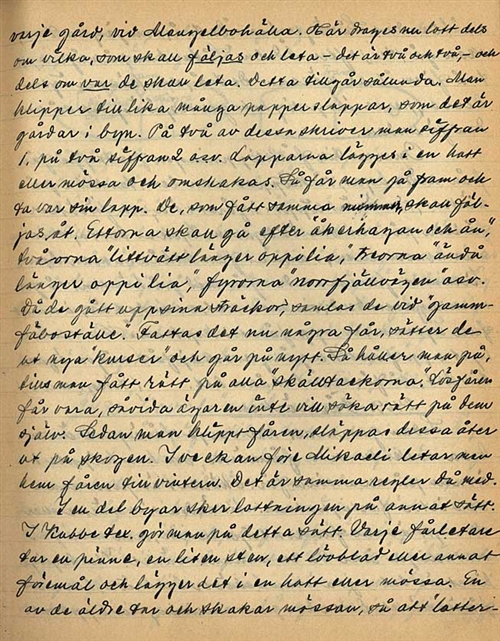 varje gård, vid Mangelbohälla. Här drages nu lott dels
om vilka, som skall följas och leta - det är två och två, - och
dels om var de skall leta. Detta tillgår sålunda. Man
klipper till lika många papperslappar, som det är
gårdar i byn. På två av dessa skriver man siffran
1, på två siffran 2 osv. Lapparna lägges i en hatt
eller mössa och omskakas. Så får man gå fram och
ta var sin lapp. De, som fått samma nummer, skall föl-
jas åt. Ettorna skall gå efter "åkerhagan och ån,"
tvåorna "littvätt länger oppi lia," treorna "ändå
länger oppi lia," fyrorna "norrfjällvägen" osv.
Då de gått upp sina sträckor, samlas de vid "gamm-
fäboställe". Fattas det nu några får, sätter de
ut nya "kurser" och går på nytt. Så håller man på,
tills man fått rätt på alla "skälltackorna". Lösfåren
får vara, såvida ägaren inte vill söka rätt på dem
själv. Sedan man klippt fåren, släppas dessa åter
ut på skogen. I veckan före Mikaeli letar man
hem fåren till vintern. Det är samma regler då med.
I en del byar sker lottningen på annat sätt.
I Kubbe t.ex. gör man på detta sätt. Varje fårletare
tar en pinne, en liten sten, ett lövblad eller annat
föremål och lägger det i en hatt eller mössa. En
av de äldre tar och skakar mössan, så att lotter-